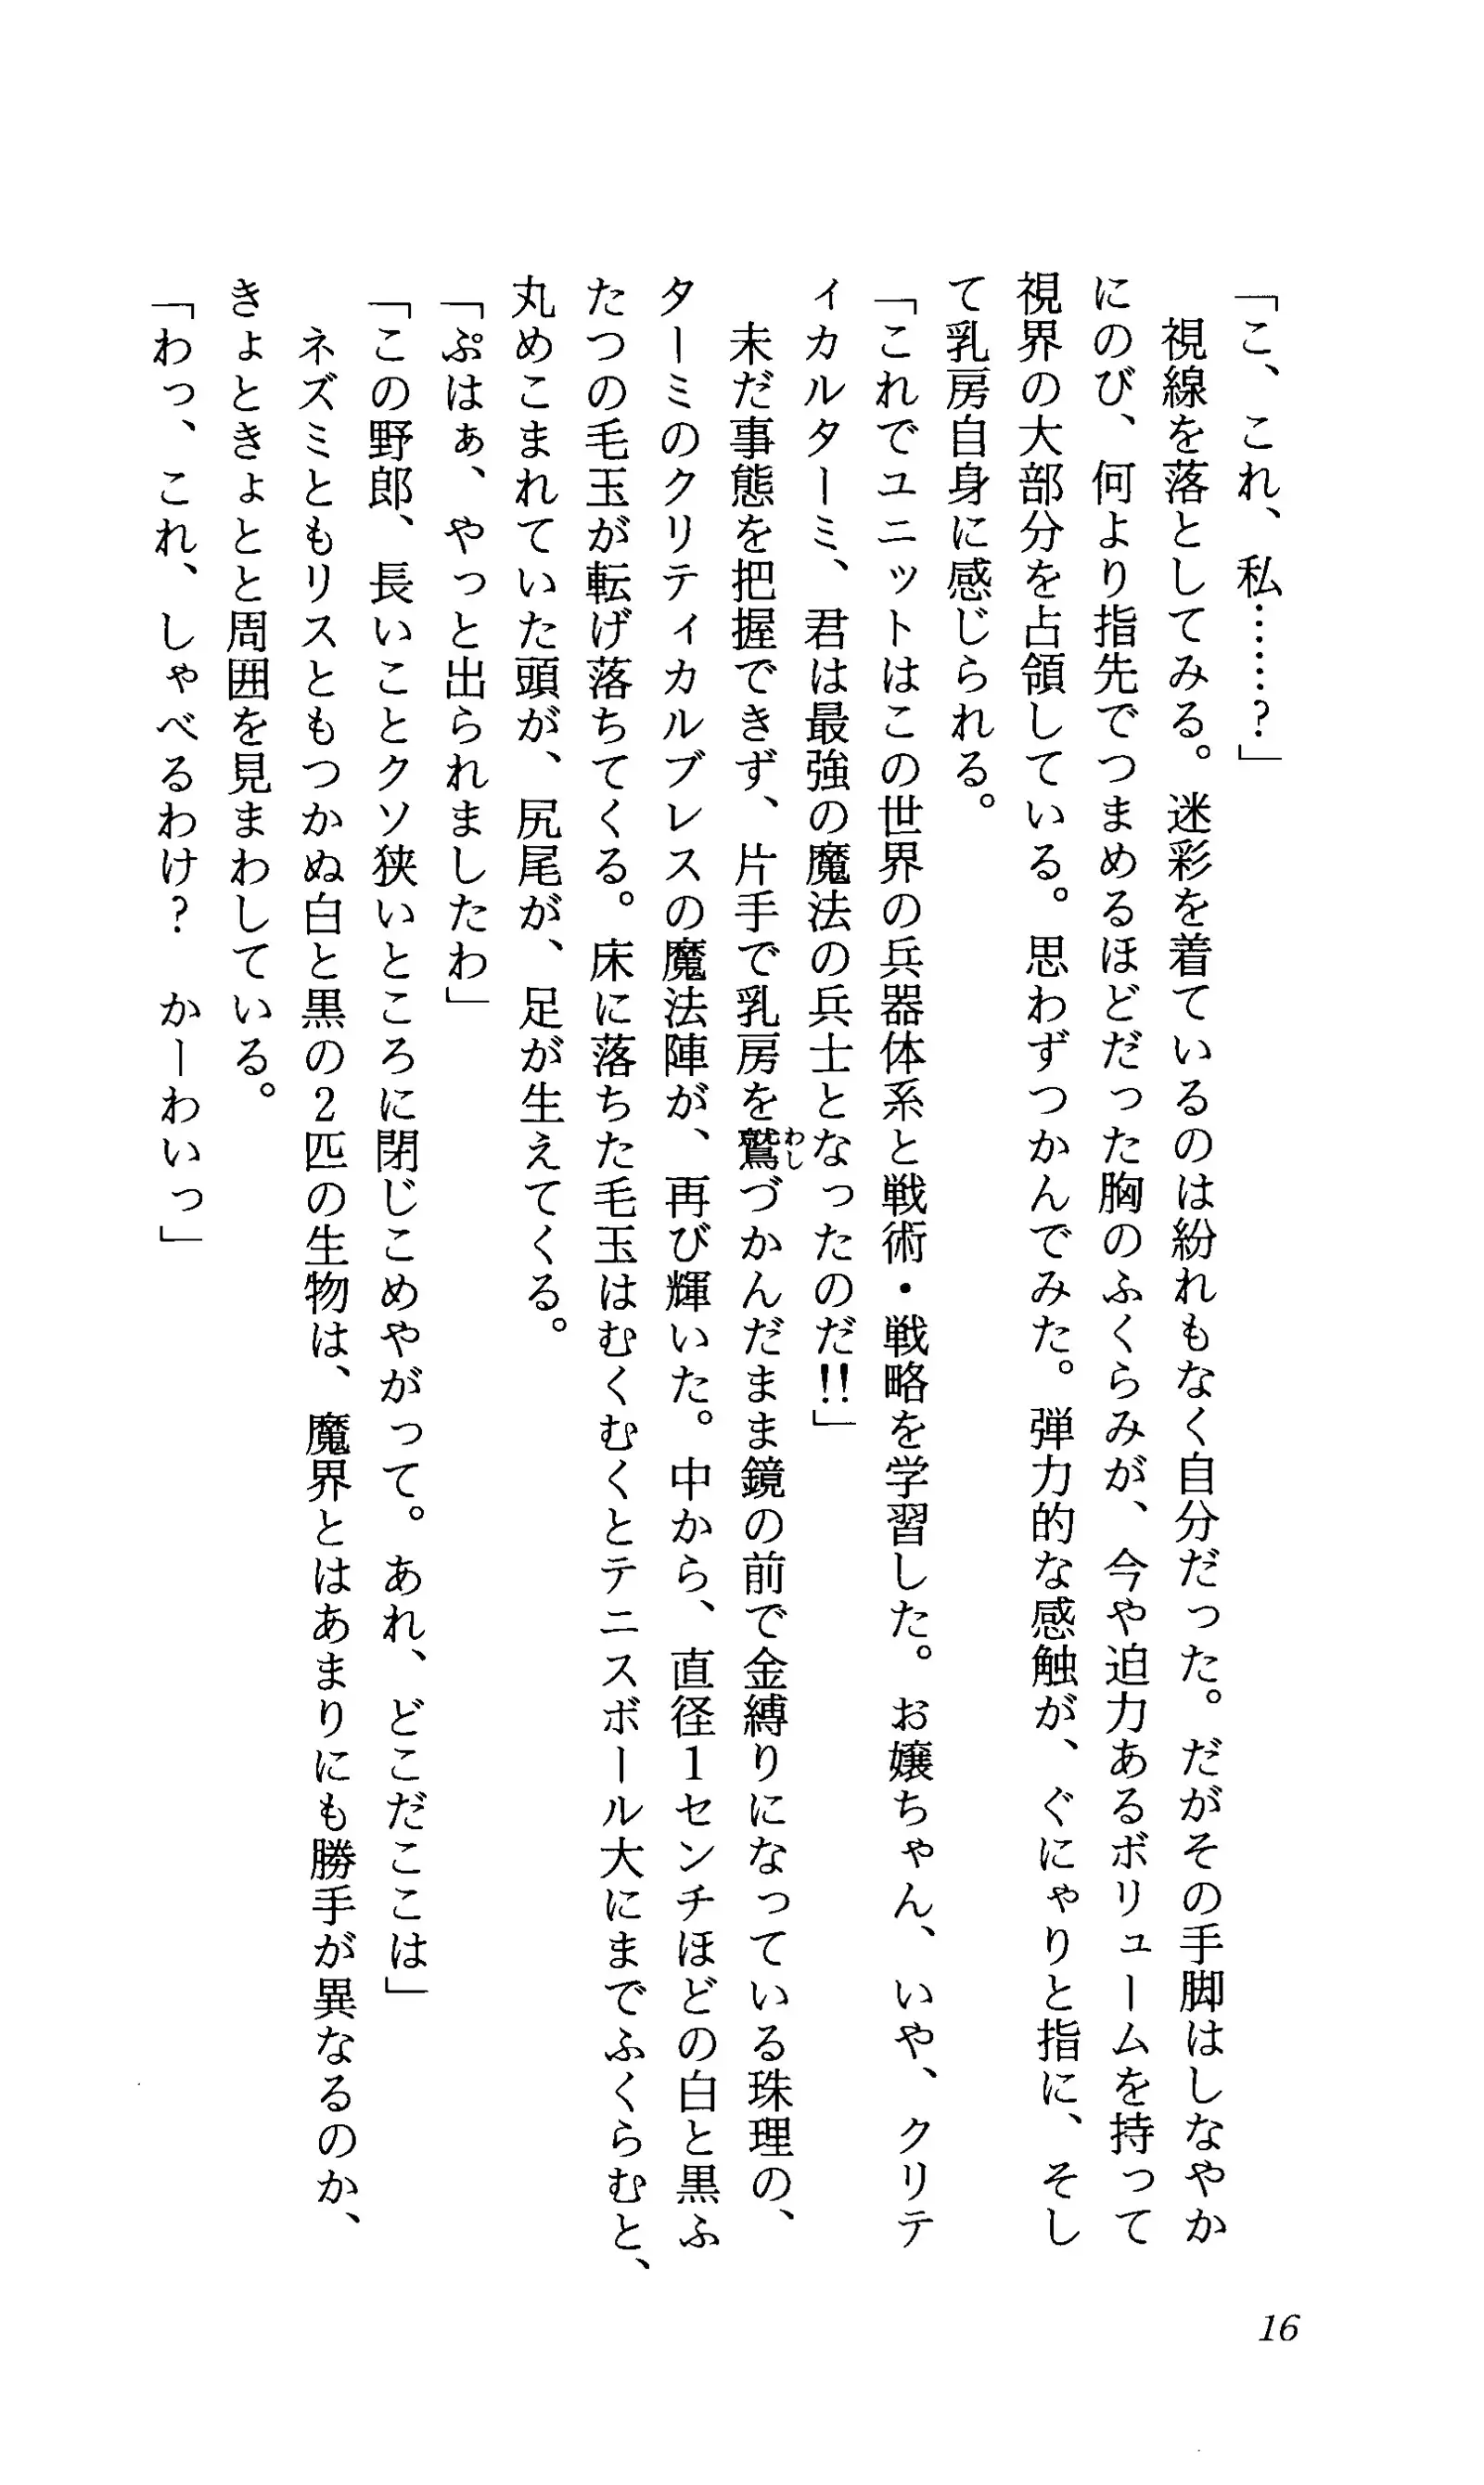 「こ、これ、私……？」
　視線を落としてみる。迷彩を着ているのは紛れもなく自分だった。だがその手脚はしなやか
にのび、何より指先でつまめるほどだった胸のふくらみが、今や迫力あるボリュームを持って
視界の大部分を占領している。思わずつかんでみた。弾力的な感触が、ぐにゃりと指に、そし
て乳房自身に感じられる。
「これでユニットはこの世界の兵器体系と戦術・戦略を学習した。お嬢ちゃん、いや、クリテ
ィカルターミ、君は最強の魔法の兵士となったのだ!!」
　未だ事態を把握できず、片手で乳房を鷲づかんだまま鏡の前で金縛りになっている珠理の、
ターミのクリティカルブレスの魔法陣が、再び輝いた。中から、直径1センチほどの白と黒ふ
たつの毛玉が転げ落ちてくる。床に落ちた毛玉はむくむくとテニスボール大にまでふくらむと、
丸めこまれていた頭が、尻尾が、足が生えてくる。
「ぷはぁ、やっと出られましたわ」
「この野郎、長いことクソ狭いところに閉じこめやがって。あれ、どこだここは」
　ネズミともリスともつかぬ白と黒の2匹の生物は、魔界とはあまりにも勝手が異なるのか、
きょときょとと周囲を見まわしている。
「わっ、これ、しゃべるわけ？　かーわいっ」
わし
16